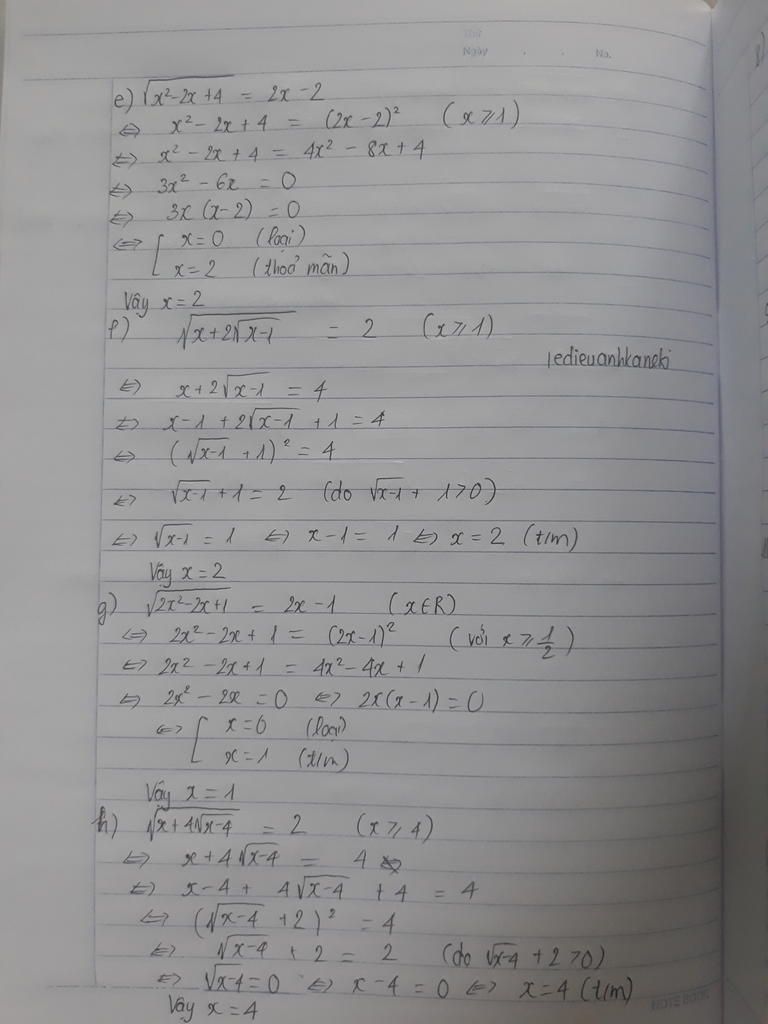 Thứ
Ngày . . No.
e) √(x²-2x+4) = 2x-2
⇔ x² - 2x + 4 = (2x-2)² (x ⩾ 1)
⇔ x² - 2x + 4 = 4x² - 8x + 4
⇔ 3x² - 6x = 0
⇔ 3x (x-2) = 0
⇔ [ x=0 (loại)
x=2 (thoả mãn)
Vậy x=2
f) √(x+2√(x-1)) = 2 (x ⩾ 1)
ledieuanhkaneki
⇔ x+2√(x-1) = 4
⇔ x-1 + 2√(x-1) + 1 = 4
⇔ (√(x-1) + 1)² = 4
⇔ √(x-1) + 1 = 2 (do √(x-1) + 1 > 0)
⇔ √(x-1) = 1 ⇔ x-1 = 1 ⇔ x = 2 (t/m)
Vậy x = 2
g) √(2x²-2x+1) = 2x-1 (x∈R)
⇔ 2x²-2x+1 = (2x-1)² (với x ⩾ 1/2)
⇔ 2x² - 2x+1 = 4x²-4x+1
⇔ 2x² - 2x = 0 ⇔ 2x(x-1) = 0
⇔ [ x=0 (loại)
x=1 (t/m)
Vậy x = 1
h) √(x+4√(x-4)) = 2 (x ⩾ 4)
⇔ x+4√(x-4) = 4
⇔ x-4 + 4√(x-4) + 4 = 4
⇔ (√(x-4) + 2)² = 4
⇔ √(x-4) + 2 = 2 (do √(x-4) + 2 > 0)
⇔ √(x-4) = 0 ⇔ x-4 = 0 ⇔ x=4 (t/m)
Vậy x = 4
NOTE BOOK